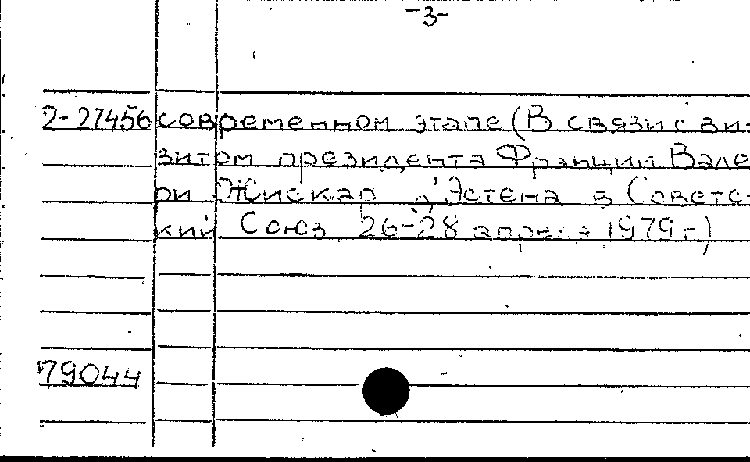 -3-
2-27456 современном этапе (В связи с ви-
зитом президента Франции Вале
ри Жискар д'Эстена в Советс-
кий Союз 26-28 апреля 1979 г.)
79044